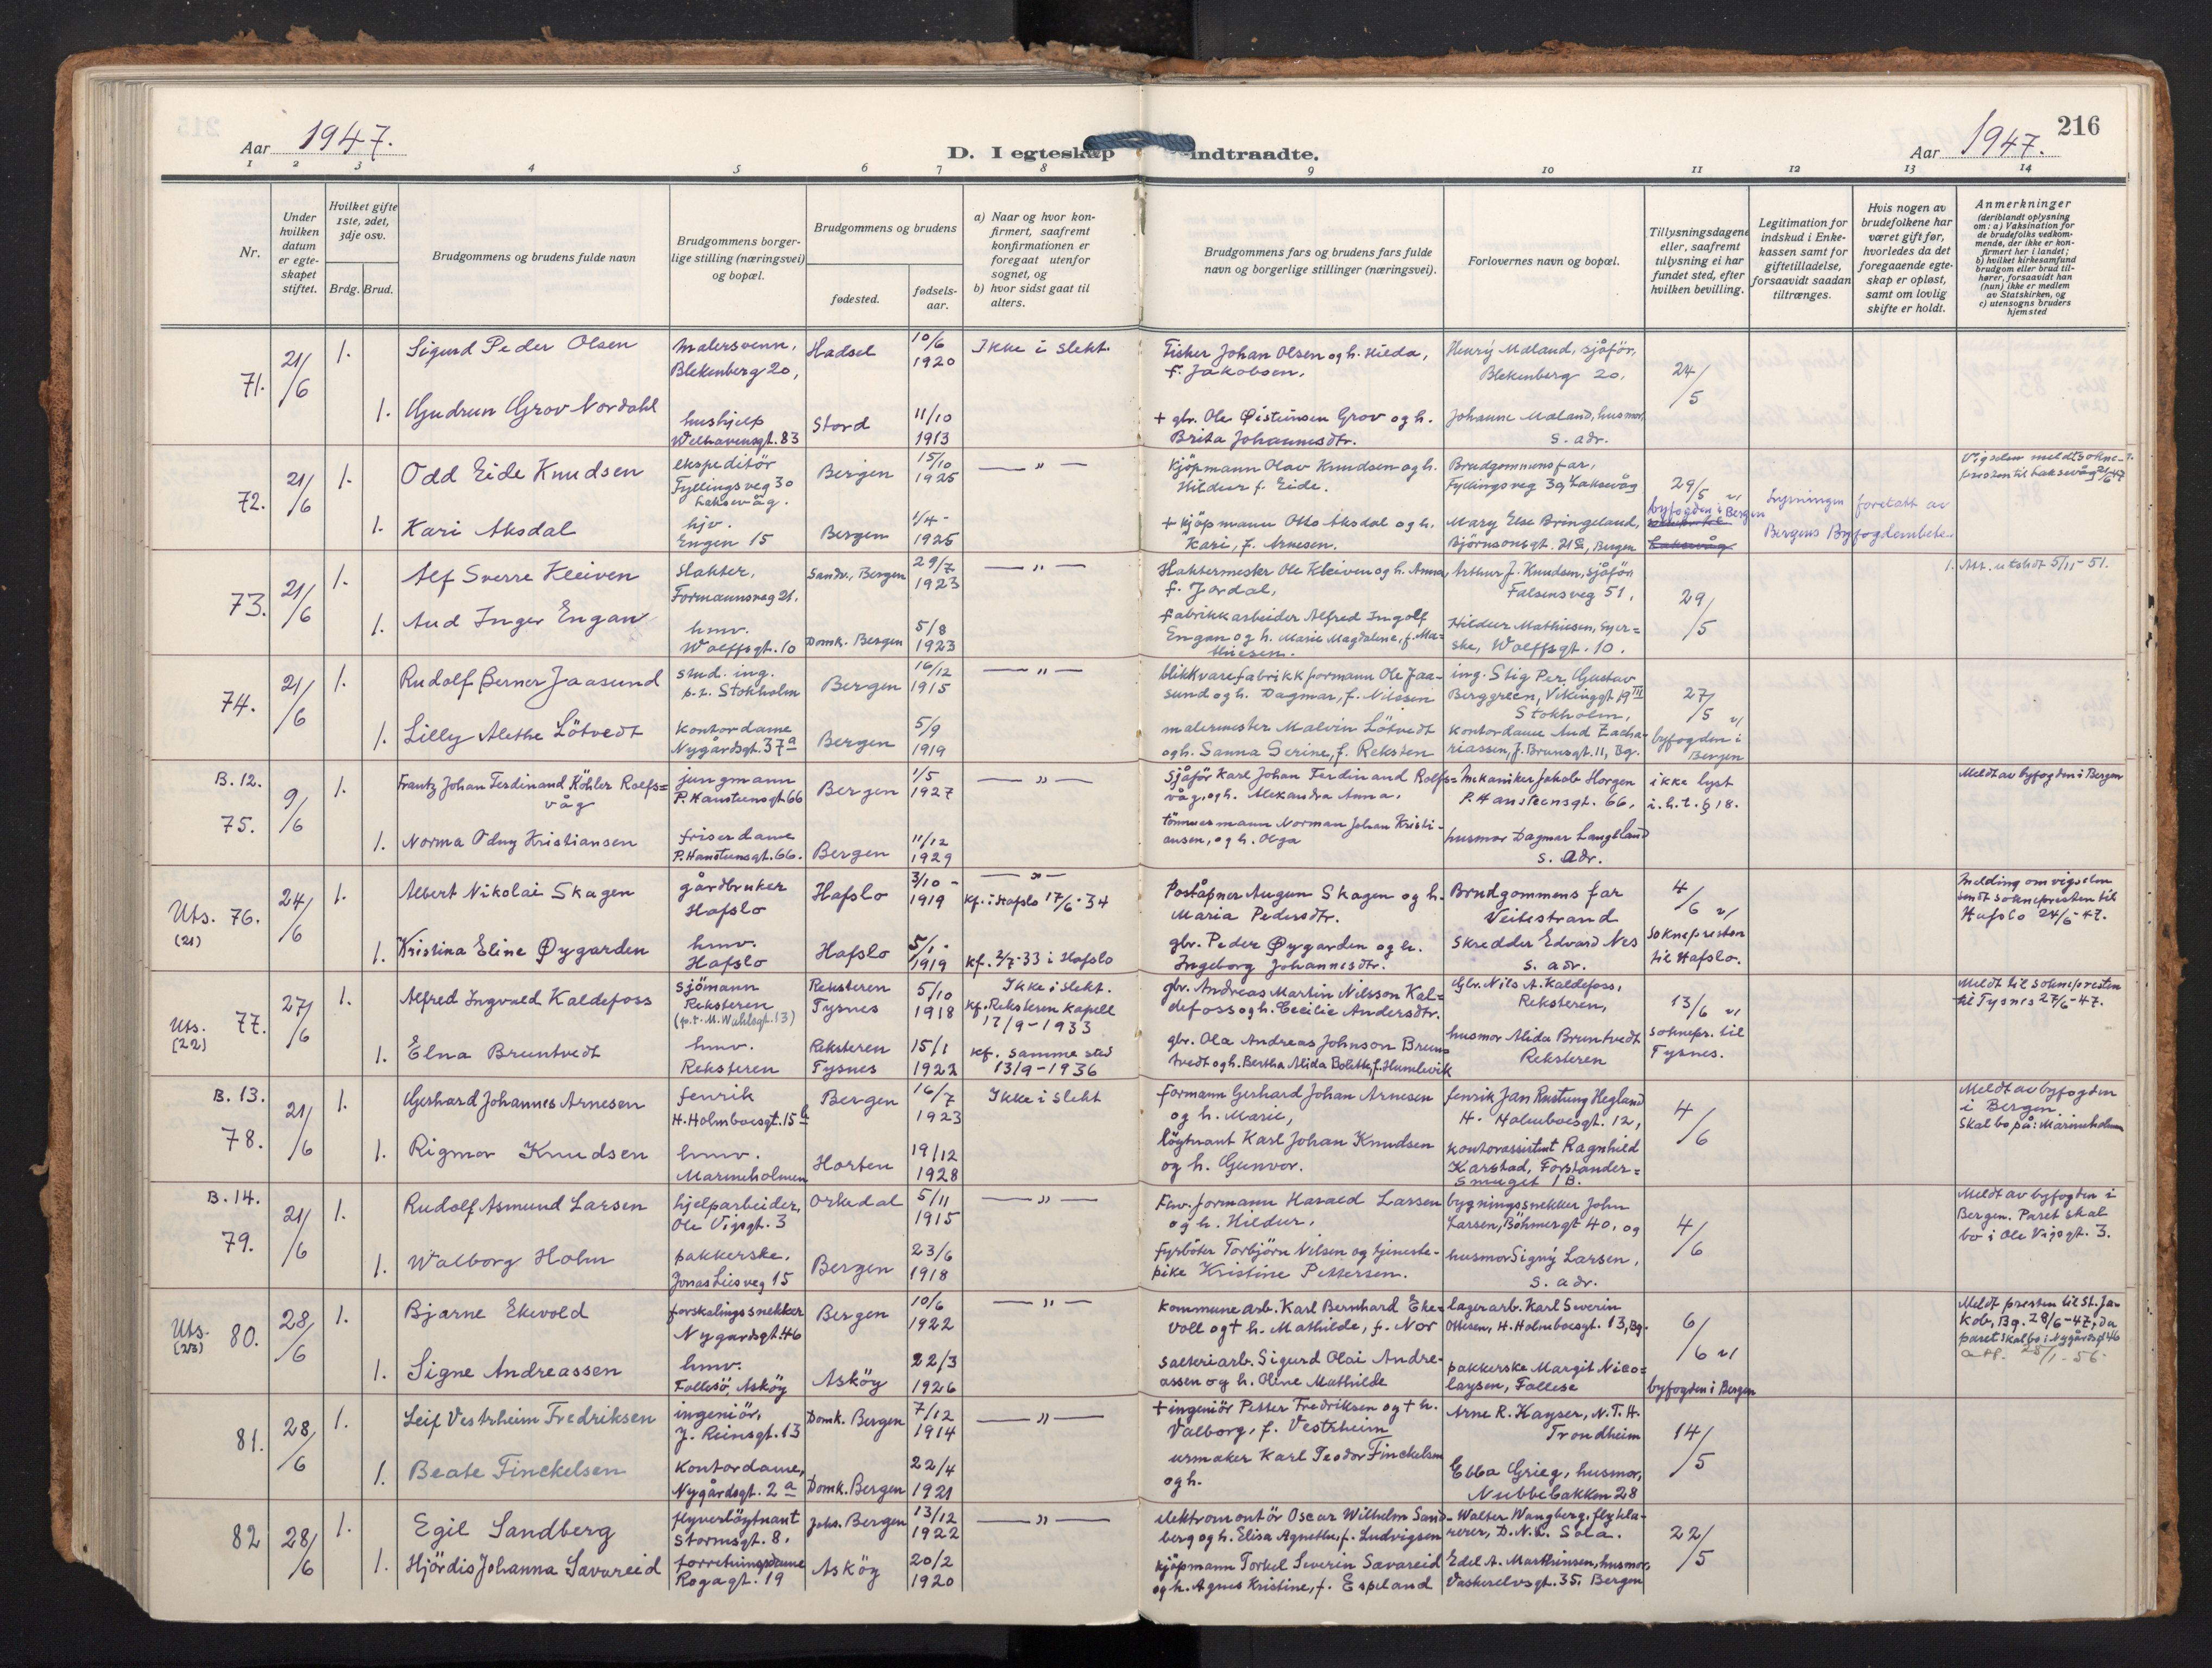 Aar 1947.
D. I egteskap indtraadte.
Aar 1947.
216
1 2 3 4 5 6 7 8 9 10 11 12 13 14
Nr.
Under hvilken datum er egteskapet stiftet.
Hvilket gifte 1ste, 2det, 3dje osv.
Brdg. Brud.
Brudgommens og brudens fulde navn
Brudgommens borgerlige stilling (næringsvei) og bopæl.
Brudgommens og brudens
fødested.
fødselsaar.
a) Naar og hvor konfirmert, saafremt konfirmationen er foregaat utenfor sognet, og
b) hvor sidst gaat til alters.
Brudgommens fars og brudens fars fulde navn og borgerlige stillinger (næringsvei).
Forlovernes navn og bopæl.
Tillysningsdagene eller, saafremt tillysning ei har fundet sted, efter hvilken bevilling.
Legitimation for indskud i Enkekassen samt for giftetilladelse, forsaavidt saadan tiltrænges.
Hvis nogen av brudefolkene har været gift før, hvorledes da det foregaaende egteskap er opløst, samt om lovlig skifte er holdt.
Anmerkninger
(deriblandt oplysning om: a) Vaksination for de brudefolks vedkommende, der ikke er konfirmert her i landet;
b) hvilket kirkesamfund brudgom eller brud tilhører, forsaavidt han (hun) ikke er medlem av Statskirken, og
c) utensogns bruders hjemsted
71. 21/6 1. Sigurd Peder Olsen
malersvenn, Blekenberg 20,
Hadsel
10/6 1920
Ikke i slekt.
Fisker Johan Olsen og h. Hilda, f. Jakobsen.
Henry Mæland, sjåför, Blekenberg 20.
24/5
1. Gudrun Grov Nordahl
hushjelp Welhavensgt. 83
Stord
11/10 1913
+ gbr. Ole Øistensen Grov og h. Brita Johannesdtr.
Johanne Mæland, husmor, s. adr.
72. 21/6 1. Odd Eide Knudsen
ekspeditör Fyllingsveg 30 Laksevåg.
Bergen
15/10 1925
— " —
Kjöpmann Olav Knudsen og h. Hildur f. Eide.
Brudgommens far, Fyllingsveg 30, Laksevåg
29/5 v/ byfogden i Bergen
Lysningen foretatt av Bergens Byfogdembete
Vigselen meldt soknepresten til Laksevåg 21/6 47
1. Kari Aksdal
hjv. Engen 15
Bergen
1/4 - 1925
+ Kjöpmann Otto Aksdal og h. Kari, f. Arnesen.
Mary Else Bringeland, Björnsonsgt. 21 C, Bergen
Laksevåg
73. 21/6 1. Alf Sverre Kleiven
slakter, Formannsveg 21.
Sandv., Bergen
29/7 1923
— " —
Slaktermester Ole Kleiven og h. Anna, f. Jordal,
Arthur J. Knudsen, sjåför, Falsensveg 51.
29/5
1. Att. utskdt 5/11-51.
1. Aud Inger Engan
hmv. Wolffsgt. 10
Domk. Bergen
5/8 1923
fabrikkarbeider Alfred Ingolf Engan og h. Marie Magdalene, f. Mathiesen.
Hildur Mathiesen, Wolffsgt. 10.
74. 21/6 1. Rudolf Berner Jaasund
stud. ing. p.t. Stokholm
Bergen
16/12 1915
— " —
blikkvarefabrikkformann Ole Jaasund og h. Dagmar, f. Nilssen
ing. Stig Per Gustav Berggreen, Vikinggt 19 III Stokholm,
27/5 v/ byfogden i Bergen
1. Lilly Alethe Lötvedt
Kontordame Nygårdsgt. 37 a
Bergen
5/9 1919
malermester Malvin Lötvedt og h. Sanna Serine, f. Reksten
Kontordame Aud Zachariassen, J. Brunsgt. 11, Bg.
B. 12.
75. 9/6 1. Frantz Johan Ferdinand Köhler Rolfsvåg
jungmann P. Hansteensgt 66
Bergen
1/5 1927
— " —
Sjåför Karl Johan Ferdinand Rolfsvåg, og h. Alexandra Anna.
Mekaniker Jakob Horgen P. Hansteensgt. 66.
ikke lyst i. h. t. § 18.
Meldt av byfogden i Bergen
1. Norma Odny Kristiansen
friserdame P. Hansteensgt. 66.
Bergen
11/12 1929
tömmermann Norman Johan Kristiansen, og h. Olga
husmor Dagmar Laugeland s. adr.
Uts. (21) 76. 24/6 1. Albert Nikolai Skagen
gårdbruker Hafslo
Hafslo
3/10 - 1919
— " — kf. i Hafslo 17/6-34
Poståpner Augun Skagen og h. Maria Pedersdtr.
Brudgommens far Veitestrand
4/6 v/ soknepresten til Hafslo.
Melding om vigselen sendt soknepresten til Hafslo 24/6-47.
1. Kristina Eline Øygarden
hmv. Hafslo
Hafslo
5/1- 1919
kf. 2/7-33 i Hafslo
gbr. Peder Øygarden og h. Ingeborg Johannesdtr.
Skredder Edvard Nes s. adr.
Uts. (22) 77. 27/6 1. Alfred Ingvald Kaldefoss
sjömann Reksteren (p.t. M. Wahlsgt. 13)
Reksteren Tysnes
5/10 1918
Ikke i slekt. kf. Reksteren Kapell 17/9-1933
gbr. Andreas Martin Nilsson Kaldefoss og h. Cecilie Andersdtr.
Gbr. Nils A. Kaldefoss, Reksteren,
13/6 v/ soknepr. til Tysnes.
Meldt til soknepresten til Tysnes 27/6-47.
1. Elna Bruntvedt
hmv. Reksteren
Reksteren Tysnes
15/1 1922
kf. samme sted 13/9-1936
gbr. Ola Andreas Johnson Bruntvedt og h. Bertha Alida Bolette, f. Humlevik
husmor Alida Bruntvedt Reksteren
B. 13.
78. 21/6 1. Gerhard Johannes Arnesen
fenrik H. Holmboesgt. 15 b
Bergen
16/7 1923
Ikke i slekt
Formann Gerhard Johan Arnesen og h. Marie,
fenrik Jan Rustung Hegland H. Holmboesgt. 12,
4/6
Meldt av byfogden i Bergen. Skal bo på: Marineholmen
1. Rigmor Knudsen
hmv. Marineholmen
Horten
19/12 1928
löytnant Karl Johan Knudsen og h. Gunvor.
kontorassistent Ragnhild Karstad, Forstandersmuget 1 B.
B. 14.
79. 21/6 1. Rudolf Asmund Larsen
hjelparbeider, Ole Vigsgt. 3
Orkedal
5/11 1915
— " —
Fhv. formann Harald Larsen og h. Hildur.
bygningssnekker John Larsen, Böhmersgt 40, og
4/6
Meldt av byfogden i Bergen. Paret skal bo i Ole Vigsgt. 3.
1. Walborg Holm
pakkerske. Jonas Liesveg 15
Bergen
23/6 1918
Fyrböter Torbjörn Nilsen og tjenestepike Kristine Pettersen.
husmor Signy Larsen, s. adr.
Uts. (23) 80. 28/6 1. Bjarne Ekevold
forskalingssnekker Nygårdsgt. 46
Bergen
10/6 1922
— " —
kommunearb. Karl Bernhard Ekevoll og + h. Mathilde, f. Nor
lagerarb. Karl Severin Ottesen, H. Holmboesgt. 13, Bg.
6/6 v/ byfogden i Bergen
Meldt presten til St. Jakob, Bg. 28/6-47, da paret skal bo i Nygårdsgt 46
att. 25/1-56
1. Signe Andreassen
hmv. Follesö, Asköy
Asköy
22/3 1926
salteriarb. Sigurd Olai Andreassen og h. Oline Mathilde
pakkerske Margit Nicolaysen, Follese
81. 28/6 1. Leif Vestrheim Fredriksen
ingeniör, J. Reinsgt. 13
Domk. Bergen
7/12 1914
— " —
+ ingeniör Petter Fredriksen og + h. Valborg, f. Vestrheim
Arne R. Kayser, N.T.H. Trondheim
14/5
1. Beate Finckelsen
Kontordame, Nygårdsgt. 2 a
Domk. Bergen
22/4 1921
urmaker Karl Teodor Finckelsen og h.
Ebba Grieg, husmor, Nubbebakken 28
82 28/6 1. Egil Sandberg
flyverlöytnant Stormsgt. 8.
Johs. Bergen
13/12 1922
— " —
elektromontör Oscar Wilhelm Sandberg og h. Elisa Agnethe, f. Ludvigsen
Walter Wangberg, flyklarerer, D.N.L. Sola.
22/5
1. Hjördis Johanna Savareid
forretningsdame Rogagt. 19
Asköy
20/2 1920
kjöpmann Torkel Severin Sævareid og h. Agnes Kristine, f. Espeland
Edel A. Marthinsen, husmor, Vaskerelvsgt. 35, Bergen